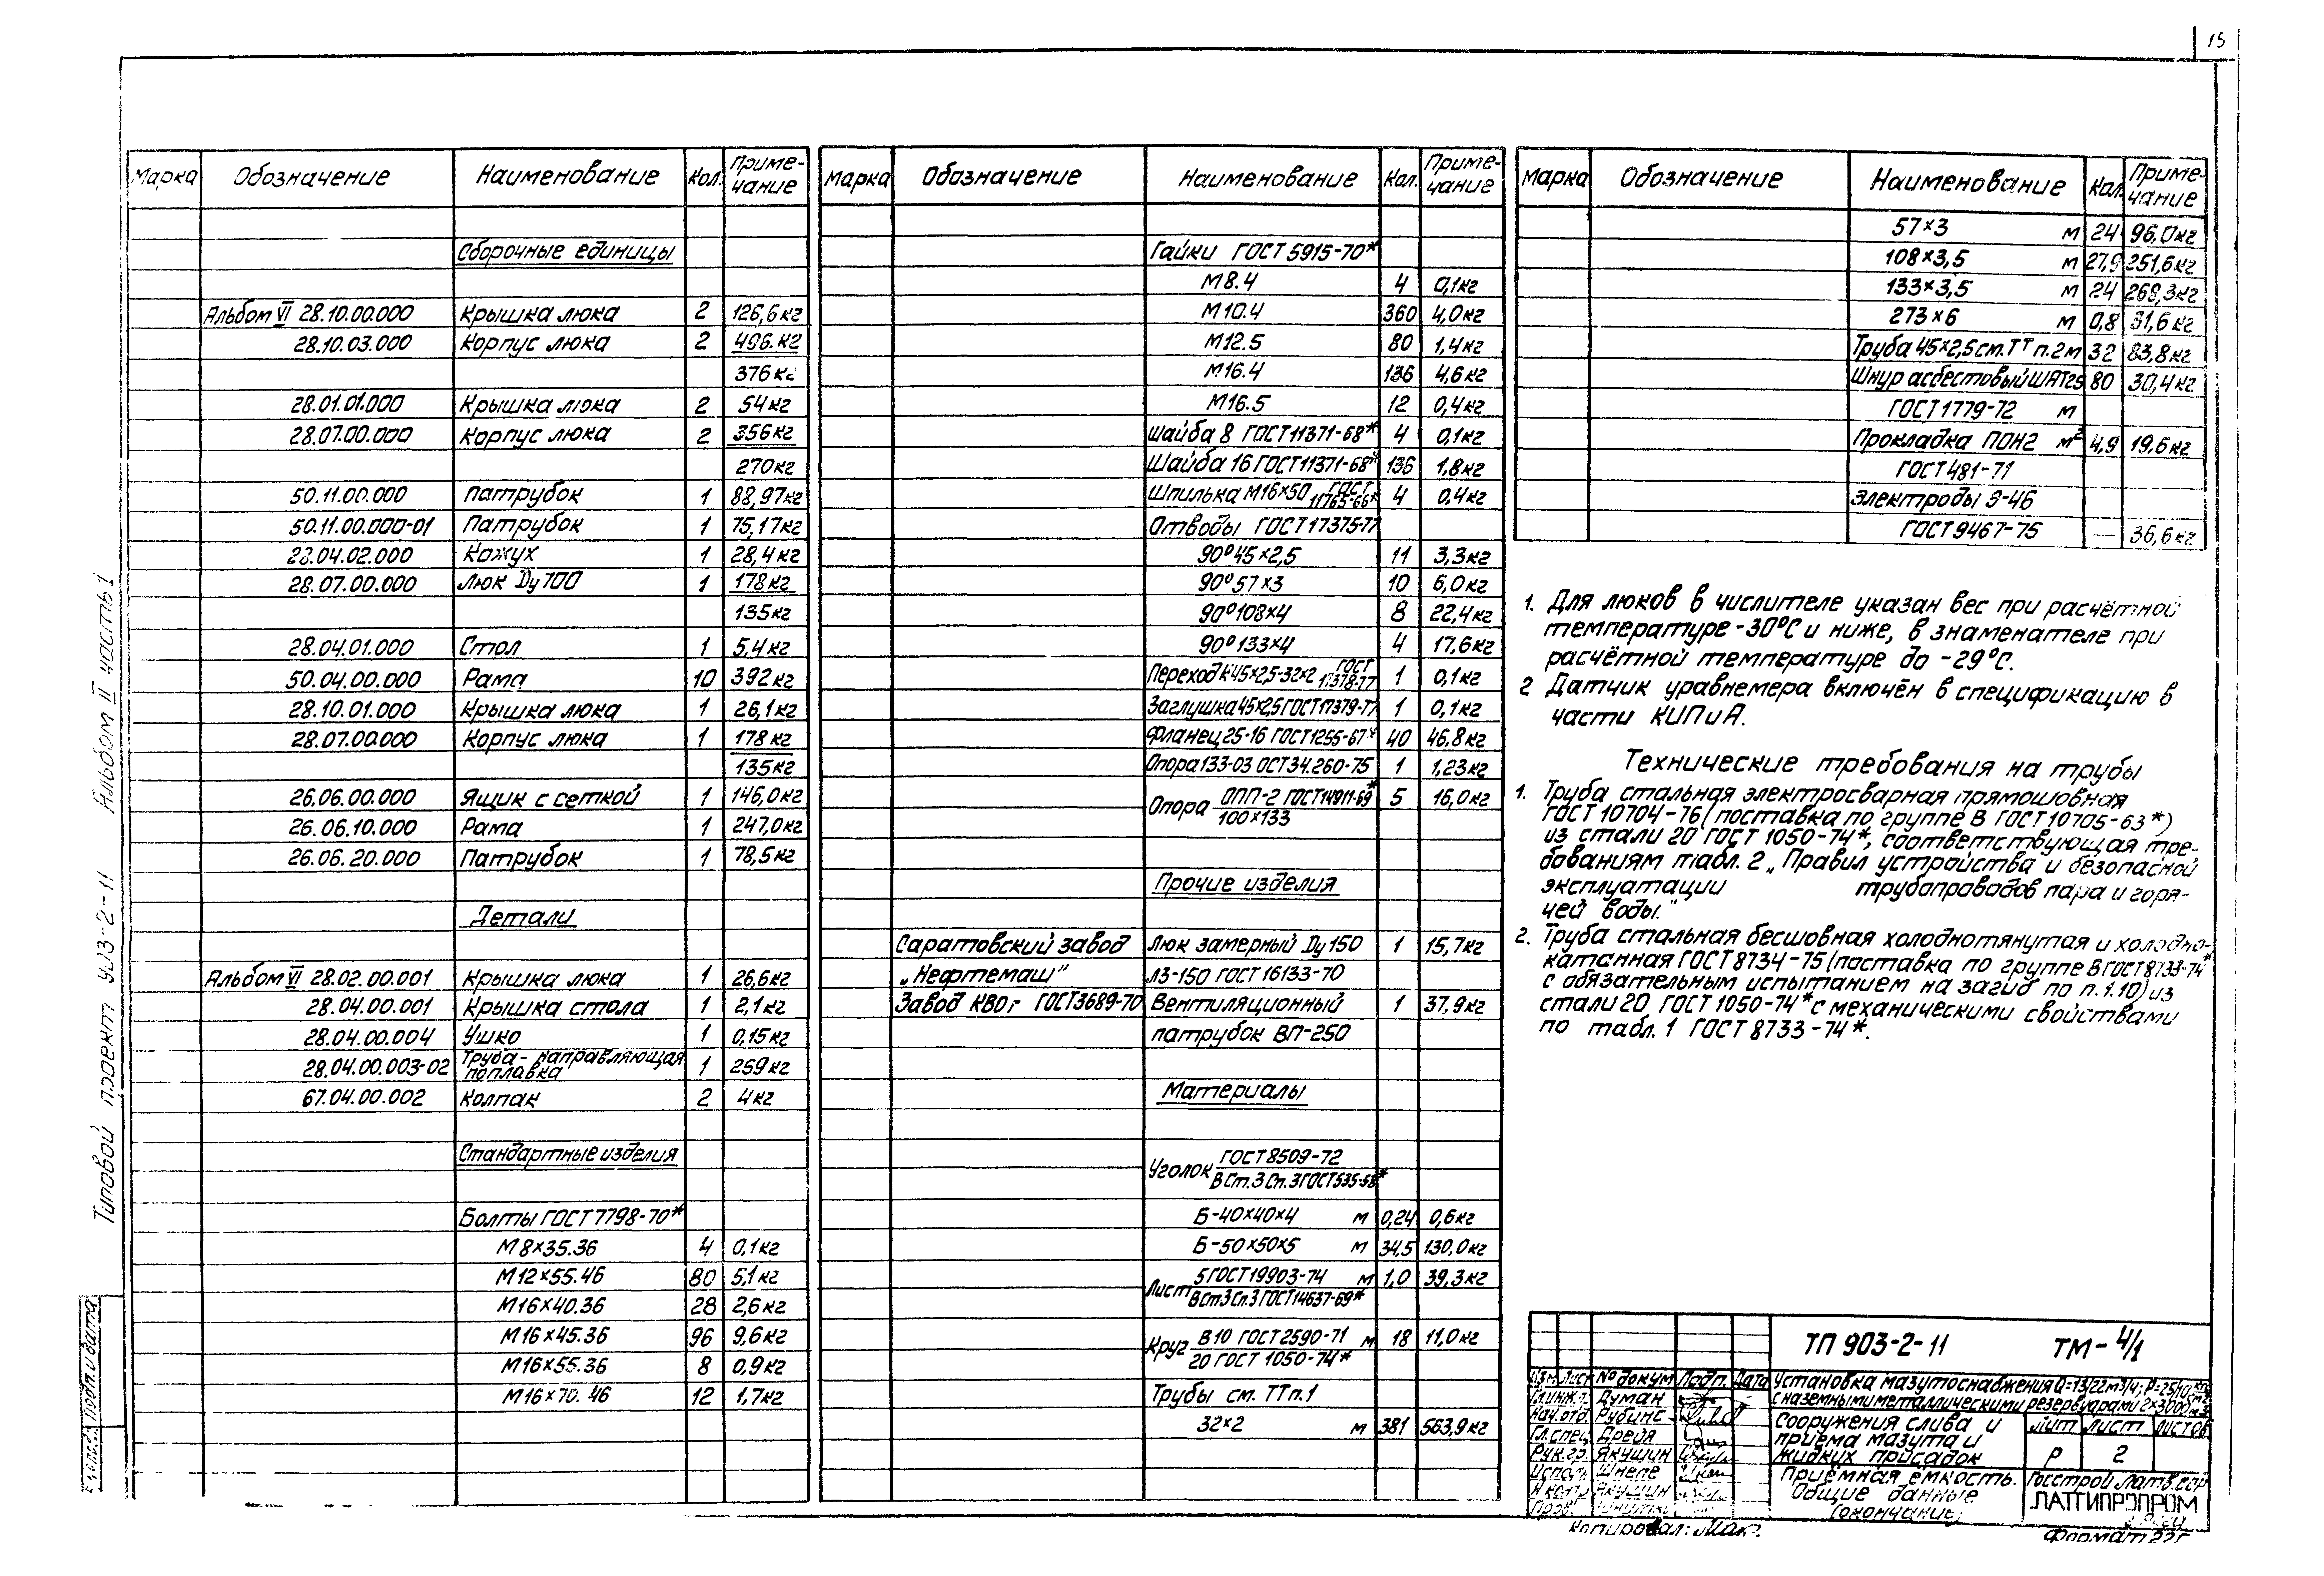 15
Марка Обозначение Наименование Кол. Приме-чание
Сборочные единицы
Альбом VI 28.10.00.000 Крышка люка 2 126,6кг
28.10.03.000 Корпус люка 2 496.кг
376кг
28.01.01.000 Крышка люка 2 54кг
28.07.00.000 Корпус люка 2 356кг
270кг
50.11.00.000 Патрубок 1 88,97кг
50.11.00.000-01 Патрубок 1 75,17кг
28.04.02.000 Кожух 1 28,4кг
28.07.00.000 Люк Ду700 1 178кг
135кг
28.04.01.000 Стол 1 5,4кг
50.04.00.000 Рама 10 392кг
28.10.01.000 Крышка люка 1 26,1кг
28.07.00.000 Корпус люка 1 178кг
135кг
26.06.00.000 Ящик с сеткой 1 146,0кг
26.06.10.000 Рама 1 247,0кг
26.06.20.000 Патрубок 1 78,5кг
Детали
Альбом VI 28.02.00.001 Крышка люка 1 26,6кг
28.04.00.001 Крышка стола 1 2,1кг
28.04.00.004 Ушко 1 0,15кг
28.04.00.003-02 Труба-направляющая поплавка 1 259кг
67.04.00.002 Колпак 2 4кг
Стандартные изделия
Болты ГОСТ 7798-70*
М8×35.36 4 0,1кг
М12×55.46 80 5,1кг
М16×40.36 28 2,6кг
М16×45.36 96 9,6кг
М16×55.36 8 0,9кг
М16×70.46 12 1,7кг
Марка Обозначение Наименование Кол. Приме-чание
Гайки ГОСТ 5915-70*
М8.4 4 0,1кг
М10.4 360 4,0кг
М12.5 80 1,4кг
М16.4 136 4,6кг
М16.5 12 0,4кг
Шайба 8 ГОСТ11371-68* 4 0,1кг
Шайба 16 ГОСТ11371-68* 136 1,8кг
Шпилька М16×50 ГОСТ 11765-66* 4 0,4кг
Отводы ГОСТ 17375-77
90° 45×2,5 11 3,3кг
90° 57×3 10 6,0кг
90° 108×4 8 22,4кг
90° 133×4 4 17,6кг
Переход К45×2,5-32×2 ГОСТ 17378-77 1 0,1кг
Заглушка 45×2,5 ГОСТ17379-77 1 0,1кг
Фланец 25-16 ГОСТ1255-67* 40 46,8кг
Опора 133-03 ОСТ34.260-75 1 1,23кг
Опора ОПП-2 ГОСТ14911-69* 5 16,0кг
100×133
Прочие изделия
Саратовский завод Люк замерный Ду150 1 15,7кг
„Нефтемаш" ЛЗ-150 ГОСТ 16133-70
Завод КВОг ГОСТ3689-70 Вентиляционный 1 37,9кг
патрубок ВП-250
Материалы
Уголок ГОСТ8509-72
ВСт.3Сп.3ГОСТ535-58*
Б-40×40×4 м 0,24 0,6кг
Б-50×50×5 м 34,5 130,0кг
Лист 5ГОСТ19903-74 м 1,0 39,3кг
ВСт3Сп.3ГОСТ14637-69*
Круг В10 ГОСТ2590-71 м 18 11,0кг
20 ГОСТ 1050-74*
Трубы см. ТТп.1
32×2 м 381 563,9кг
Марка Обозначение Наименование Кол. Приме-чание
57×3 м 24 96,0кг
108×3,5 м 27,9 251,6кг
133×3,5 м 24 268,3кг
273×6 м 0,8 31,6кг
Труба 45×2,5 см. ТТ п.2 м 32 83,8кг
Шнур асбестовый ШАТ25 80 30,4кг
ГОСТ1779-72 м
Прокладка ПОН2 м² 4,9 19,6кг
ГОСТ481-71
Электроды Э-46
ГОСТ9467-75 — 36,6кг
1. Для люков в числителе указан вес при расчётной
температуре -30°С и ниже, в знаменателе при
расчётной температуре до -29°С.
2 Датчик уравнемера включён в спецификацию в
части КИПиА.
Технические требования на трубы
1. Труба стальная электросварная прямошовная
ГОСТ 10704-76 (поставка по группе В ГОСТ 10705-63*)
из стали 20 ГОСТ 1050-74*, соответствующая тре-
бованиям табл. 2 „Правил устройства и безопасной
эксплуатации трубопроводов пара и горя-
чей воды."
2. Труба стальная бесшовная холоднотянутая и холодно-
катанная ГОСТ 8734-75 (поставка по группе В ГОСТ8733-74*
с обязательным испытанием на загиб по п.1.10) из
стали 20 ГОСТ 1050-74* с механическими свойствами
по табл. 1 ГОСТ 8733-74*.
Типовой проект 903-2-11 Альбом II часть 1
Подп. и дата
ТП 903-2-11 ТМ-4/1
Изм. Лист № докум Подп. Дата
Гл.инж.п. Думан
Нач.отд. Рубинс
Гл.спец. Дрейя
Рук.гр. Якушин
Исполн. Шнепе
Н.контр Якушин
Пров.
Установка мазутоснабжения Q=13/22м3/ч; Р=25/10
с наземными металлическими резервуарами 2×300м3
Сооружения слива и
приёма мазута и
жидких присадок
Лит Лист Листов
Р 2
Приёмная емкость.
Общие данные
(окончание)
Госстрой Латв.ССР
ЛАТГИПРОПРОМ
Копировал:
Формат 22г